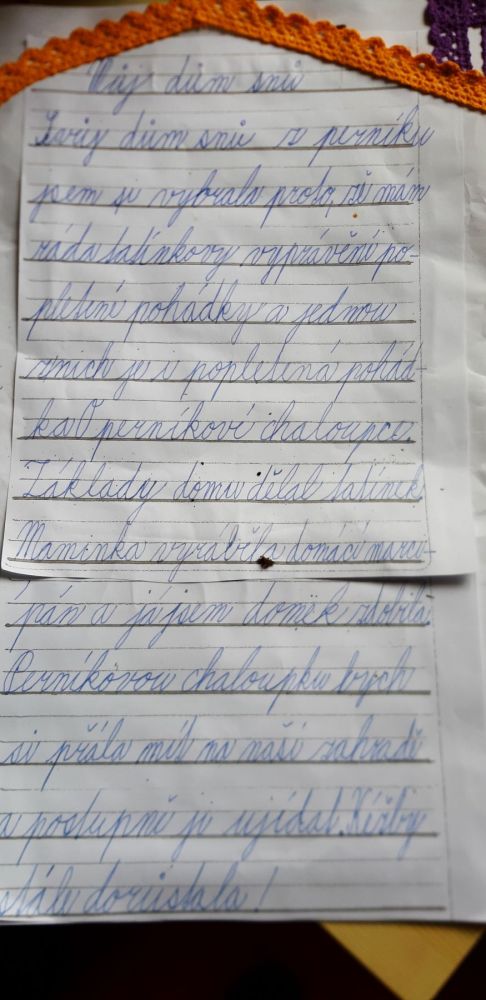 Můj dům snů
Svůj dům snů z perníku
jsem si vybrala proto, že mám
ráda tatínkovy vyprávění po-
pletené pohádky a jednou
z nich je i popletená pohád-
ka O perníkové chaloupce.
Základy domu dělal tatínek.
Maminka vyráběla domácí marci-
pán a já jsem domek zdobila.
Perníkovou chaloupku bych
si přála mít na naší zahradě
a postupně ji ujídat. Kéžby
stále dorůstala!